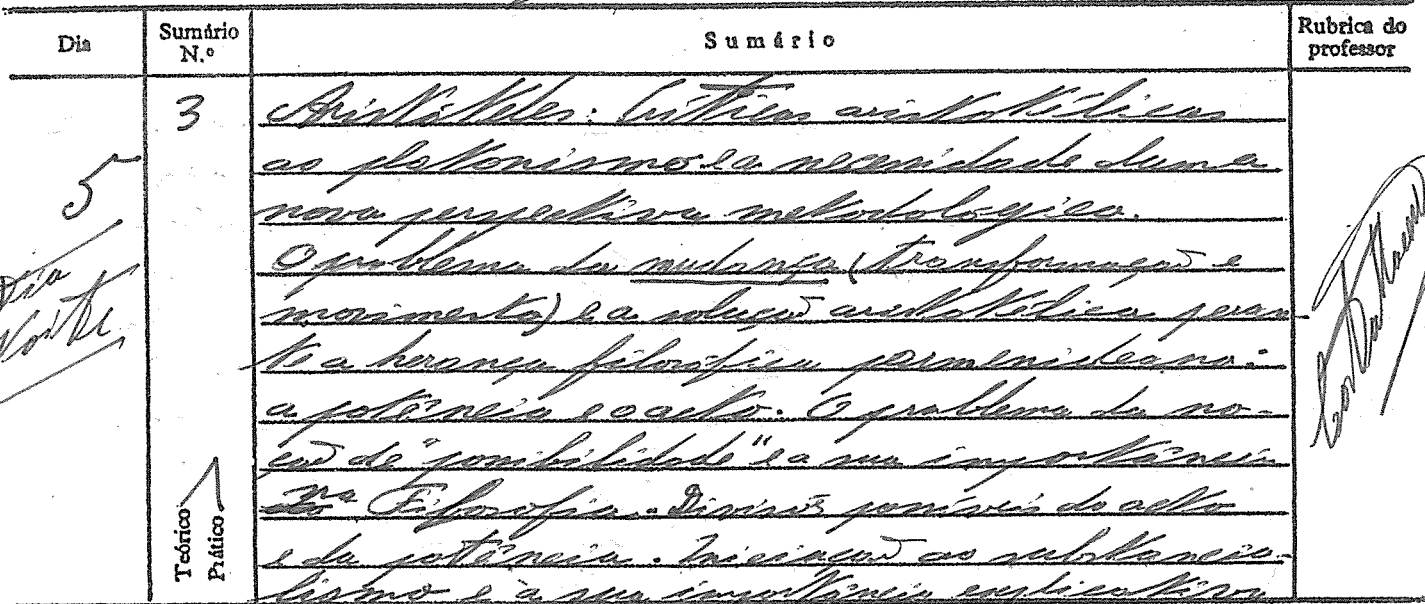 Dia
Sumário N.º
Sumário
Rubrica do professor
5
3
Aristóteles: Críticas aristotélicas
ao platonismo e a necessidade duma
nova perspectiva metodológica.
O problema da mudança (transformação e
movimento) e a solução aristotélica peran-
te a herança filosófica parmenideana:
a potência e o acto. O problema da no-
ção de "possibilidade" e a sua importância
na Filosofia. Divisões possíveis do acto
e da potência. Iniciação ao substancia-
lismo e à sua importância explicativa
Dia
Noite
Teórico
Prático